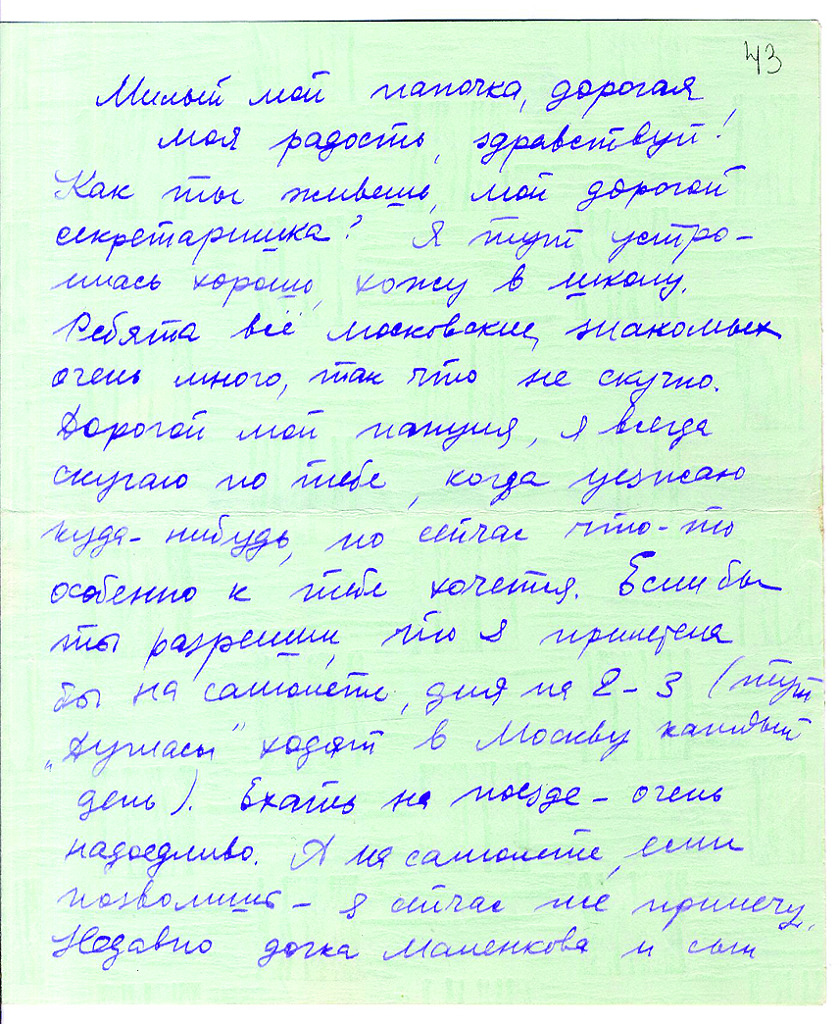 43
Милый мой папочка, дорогая
моя радость, здравствуй!
Как ты живешь, мой дорогой
секретаришка? Я тут устро-
илась хорошо, хожу в школу.
Ребята всё московские, знакомых
очень много, так что не скучно.
Дорогой мой папуля, я всегда
скучаю по тебе, когда уезжаю
куда-нибудь, но сейчас что-то
особенно к тебе хочется. Если бы
ты разрешил, то я прилетела
бы на самолете, дня на 2-3 (тут
„Дугласы" ходят в Москву каждый
день). Ехать на поезде - очень
надоедливо. А на самолете, если
позволишь - я сейчас же прилечу.
Недавно дочка Маленкова и сын